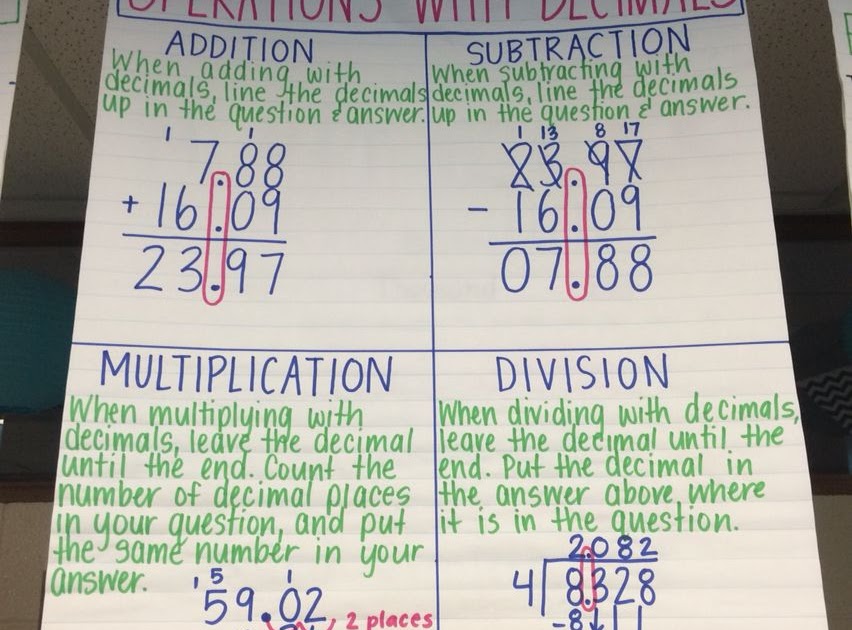 OPERATIONS WITH DECIMALS
ADDITION
When adding with
decimals, line the decimals
up in the question & answer.
1 1
7.88
+ 16.09
23.97
SUBTRACTION
When subtracting with
decimals, line the decimals
up in the question & answer.
1 13 8 17
23.97
- 16.09
07.88
MULTIPLICATION
When multiplying with
decimals, leave the decimal
until the end. Count the
number of decimal places
in your question, and put
the same number in your
answer.
1 5 1
59.02
2 places
DIVISION
When dividing with decimals,
leave the decimal until the
end. Put the decimal in
the answer above where
it is in the question.
2.082
4 8.328
-8